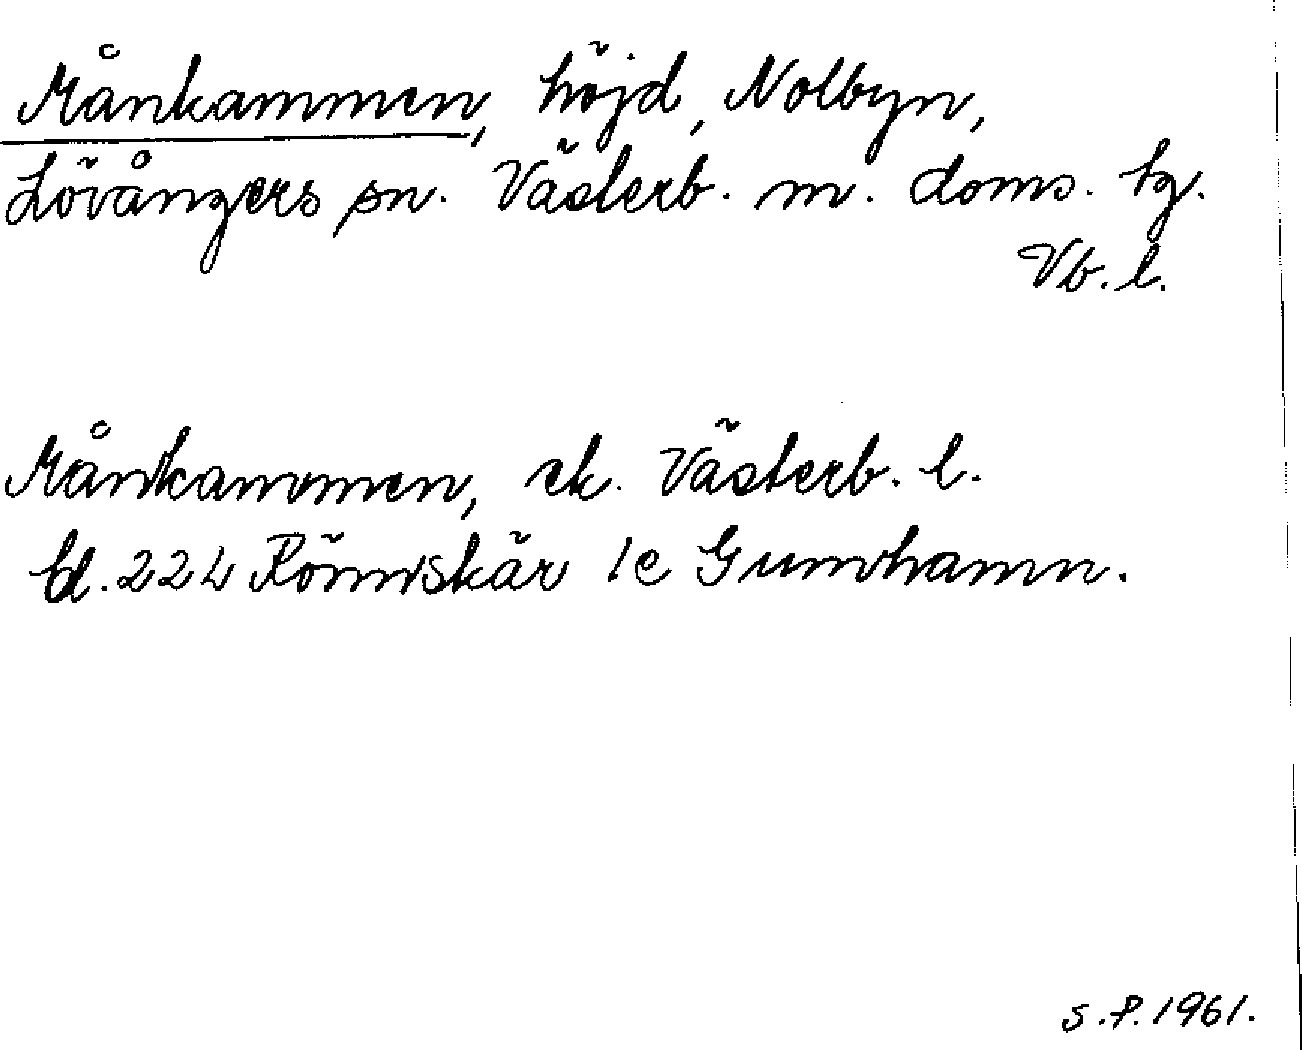 Månkammen, höjd, Nolbyn,
Lövångers sn. Västerb. m. doms. tg.
Vb. l.
Månkammen, ek. Västerb. l.
bl. 22L Rönnskär 1e Gumhamn.
S.P. 1961.